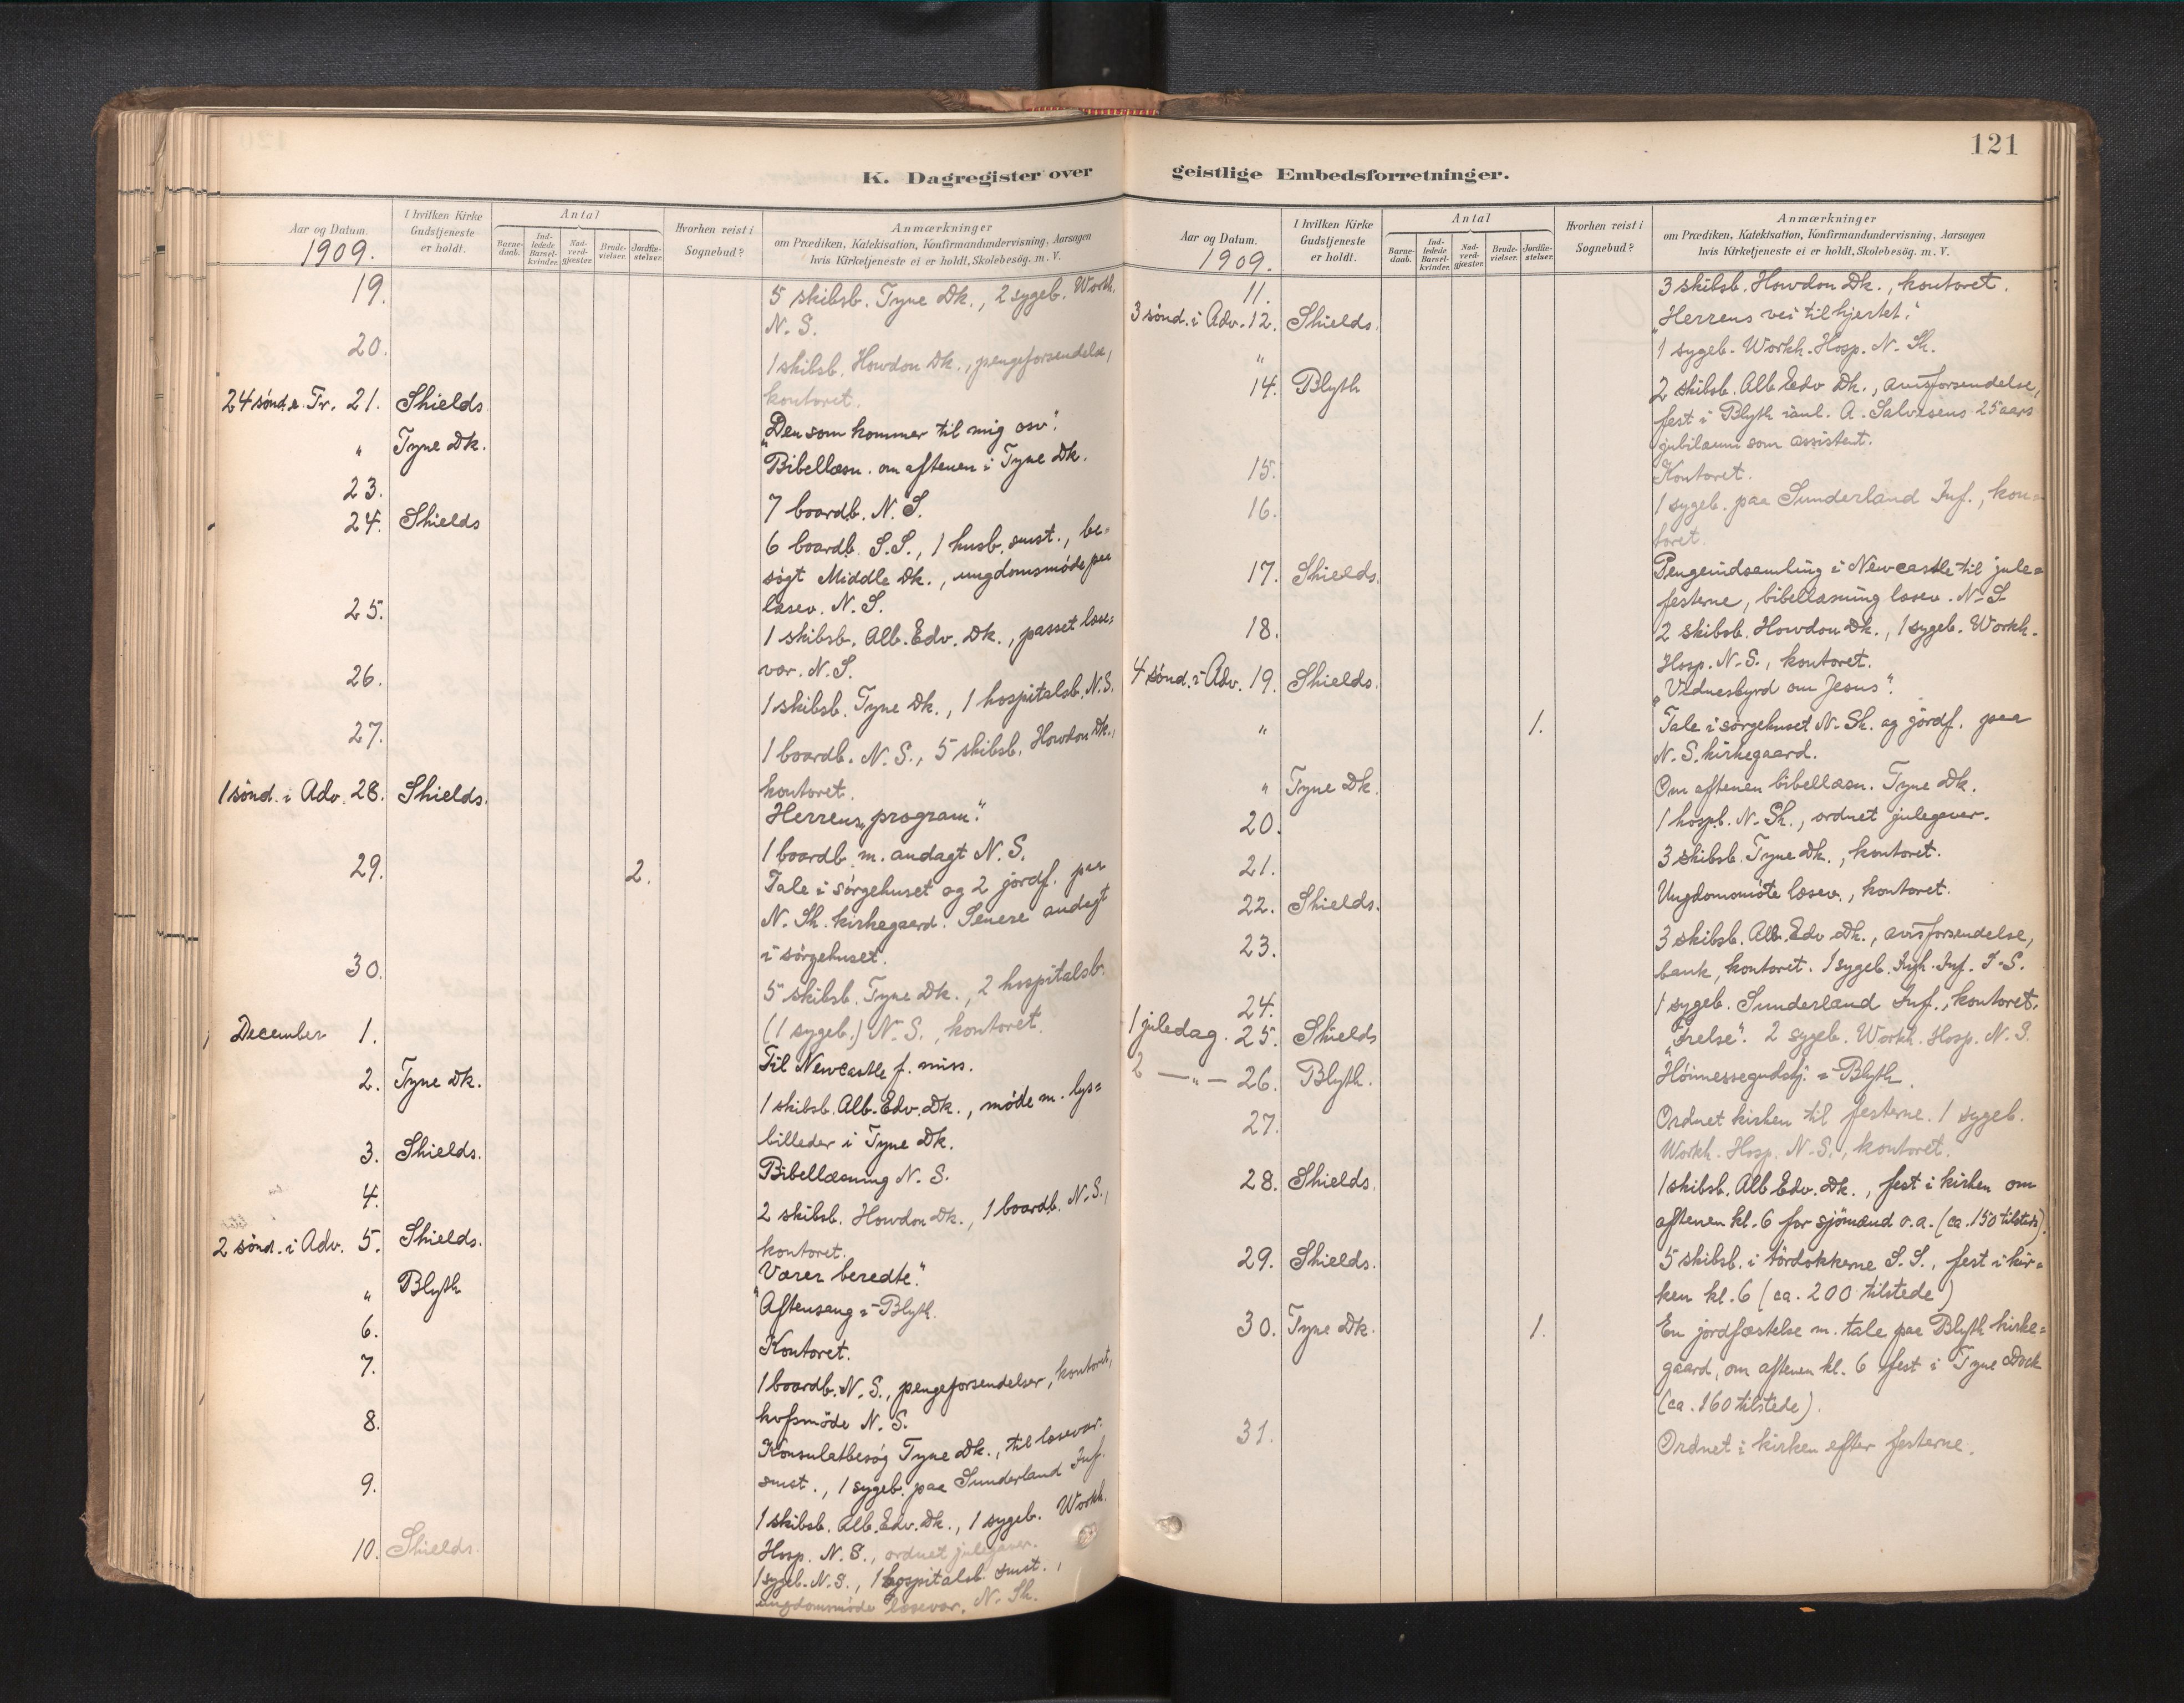 K. Dagregister over
Aar og Datum.
1909.
I hvilken Kirke Gudstjeneste er holdt.
Antal
Barne-daab.
Ind-ledede Barsel-kvinder.
Nad-verd-gjæster.
Brude-vielser.
Jordfæ-stelser.
Hvorhen reist i Sognebud?
Anmærkninger
om Prædiken, Katekisation, Konfirmandundervisning, Aarsagen
hvis Kirketjeneste ei er holdt, Skolebesög. m. V.
19. 5 skibsb. Tyne Dk., 2 sygeb. Workh.
N. S.
20. 1 skibsb. Howdon Dk., pengeforsendelse,
kontoret.
24 sönd. e. Tr. 21. Shields "Den som kommer til mig osv".
" Tyne Dk. Bibellæsn. om aftenen i Tyne Dk.
23. 7 boardb. N. S.
24. Shields 6 boardb. S.S., 1 husb. smst., be=
søgt Middle Dk., ungdomsmøde paa
læsev. N. S.
25. 1 skibsb. Alb. Edv. Dk., passet læse=
vær. N. S.
26. 1 skibsb. Tyne Dk., 1 hospitalsb. N.S.
27. 1 boardb. N. S., 5 skibsb. Howdon Dk.,
kontoret.
1 sönd. i Adv. 28. Shields. Herrens "program".
1 boardb. m. andagt N. S.
29. 2. Tale i sørgehuset og 2 jordf. paa
N. Sh. kirkegaard. Senere andagt
i sørgehuset.
30. 5 skibsb. Tyne Dk., 2 hospitalsb.
(1 sygeb.) N. S., kontoret.
December 1. Til Newcastle f. miss.
2. Tyne Dk. 1 skibsb. Alb. Edv. Dk., møde m. lys=
billeder i Tyne Dk.
3. Shields. Bibellæsning N. S.
4. 2 skibsb. Howdon Dk., 1 boardb. N.S.,
kontoret.
2 sönd. i Adv. 5. Shields. "Værer beredte".
" Blyth Aftensang i Blyth.
6. Kontoret.
7. 1 boardb. N. S., pengeforsendelser, kontoret,
møde N. S.
8. Konsulatbesøg Tyne Dk., til læsevær.
smst., 1 sygeb. paa Sunderland Inf.
9. 1 skibsb. Alb. Edv. Dk., 1 sygeb. Workh.
Hosp. N. S., ordnet julegaver.
10. Shields. 1 sygeb. N.S., 1 hospitalsb. smst.,
ungdomsmøde læsevær. N. Sh.
121
geistlige Embedsforretninger.
Aar og Datum.
1909.
I hvilken Kirke Gudstjeneste er holdt.
Antal
Barne-daab.
Ind-ledede Barsel-kvinder.
Nad-verd-gjæster.
Brude-vielser.
Jordfæ-stelser.
Hvorhen reist i Sognebud?
Anmærkninger
om Prædiken, Katekisation, Konfirmandundervisning, Aarsagen
hvis Kirketjeneste ei er holdt, Skolebesög. m. V.
11. 3 skibsb. Howdon Dk., kontoret.
3 sönd. i Adv. 12. Shields. "Herrens vei til hjertet".
" 1 sygeb. Workh. Hosp. N. Sh.
14. Blyth 2 skibsb. Alb. Edv Dk., avisforsendelse,
fest i Blyth ianl. A. Salvesens 25 aars
jubilæum som assistent.
15. Kontoret.
16. 1 sygeb. paa Sunderland Inf., kon=
toret.
17. Shields. Pengeindsamling i Newcastle til jule=
festerne, bibellæsning læsev. N. S.
18. 2 skibsb. Howdon Dk., 1 sygeb. Workh.
Hosp. N. S., kontoret.
4 sönd. i Adv. 19. Shields. "Vidnesbyrd om Jesus".
" 1. Tale i sørgehuset N. Sh. og jordf. paa
N. S. kirkegaard.
" Tyne Dk. Om aftenen bibellæsn. Tyne Dk.
20. 1 hospb. N. Sh., ordnet julegaver.
21. 3 skibsb. Tyne Dk., kontoret.
22. Shields. Ungdomsmøte læsev., kontoret.
23. 3 skibsb. Alb. Edv Dk., avisforsendelse,
bank, kontoret. 1 sygeb. Inf.
24. 1 sygeb. Sunderland Inf., kontoret.
1 juledag. 25. Shields "Frelse". 2 sygeb. Workh. Hosp. N. S.
2 — " — 26. Blyth. Høimessegudstj. i Blyth.
27. Ordnet kirken til festerne. 1 sygeb.
Workh. Hosp. N. S., kontoret.
28. Shields. 1 skibsb. Alb Edv. Dk., fest i kirken om
aftenen kl. 6 for sjömænd o.a. (ca. 150 tilstede).
29. Shields. 5 skibsb. i tördokkerne S. S., fest i kir=
ken kl. 6 (ca. 200 tilstede)
30. Tyne Dk. 1. En jordfæstelse m. tale paa Blyth kirke=
gaard, om aftenen kl. 6 fest i Tyne Dock
(ca. 160 tilstede).
31. Ordnet i kirken efter festerne.